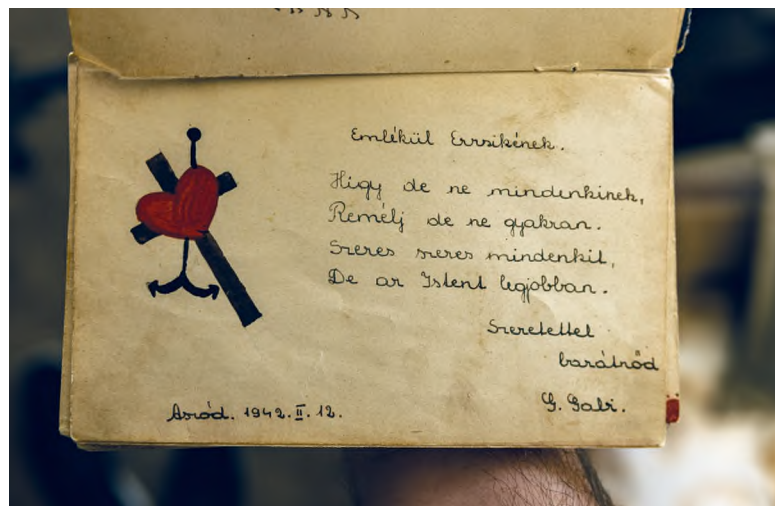 Emlékül Erzsikének.
Higy de ne mindenkinek,
Remélj de ne gyakran.
Szeres szeres mindenkit,
De az Istent legjobban.
Szeretettel
barátnőd
G. Gabi.
Aszód. 1942. II. 12.